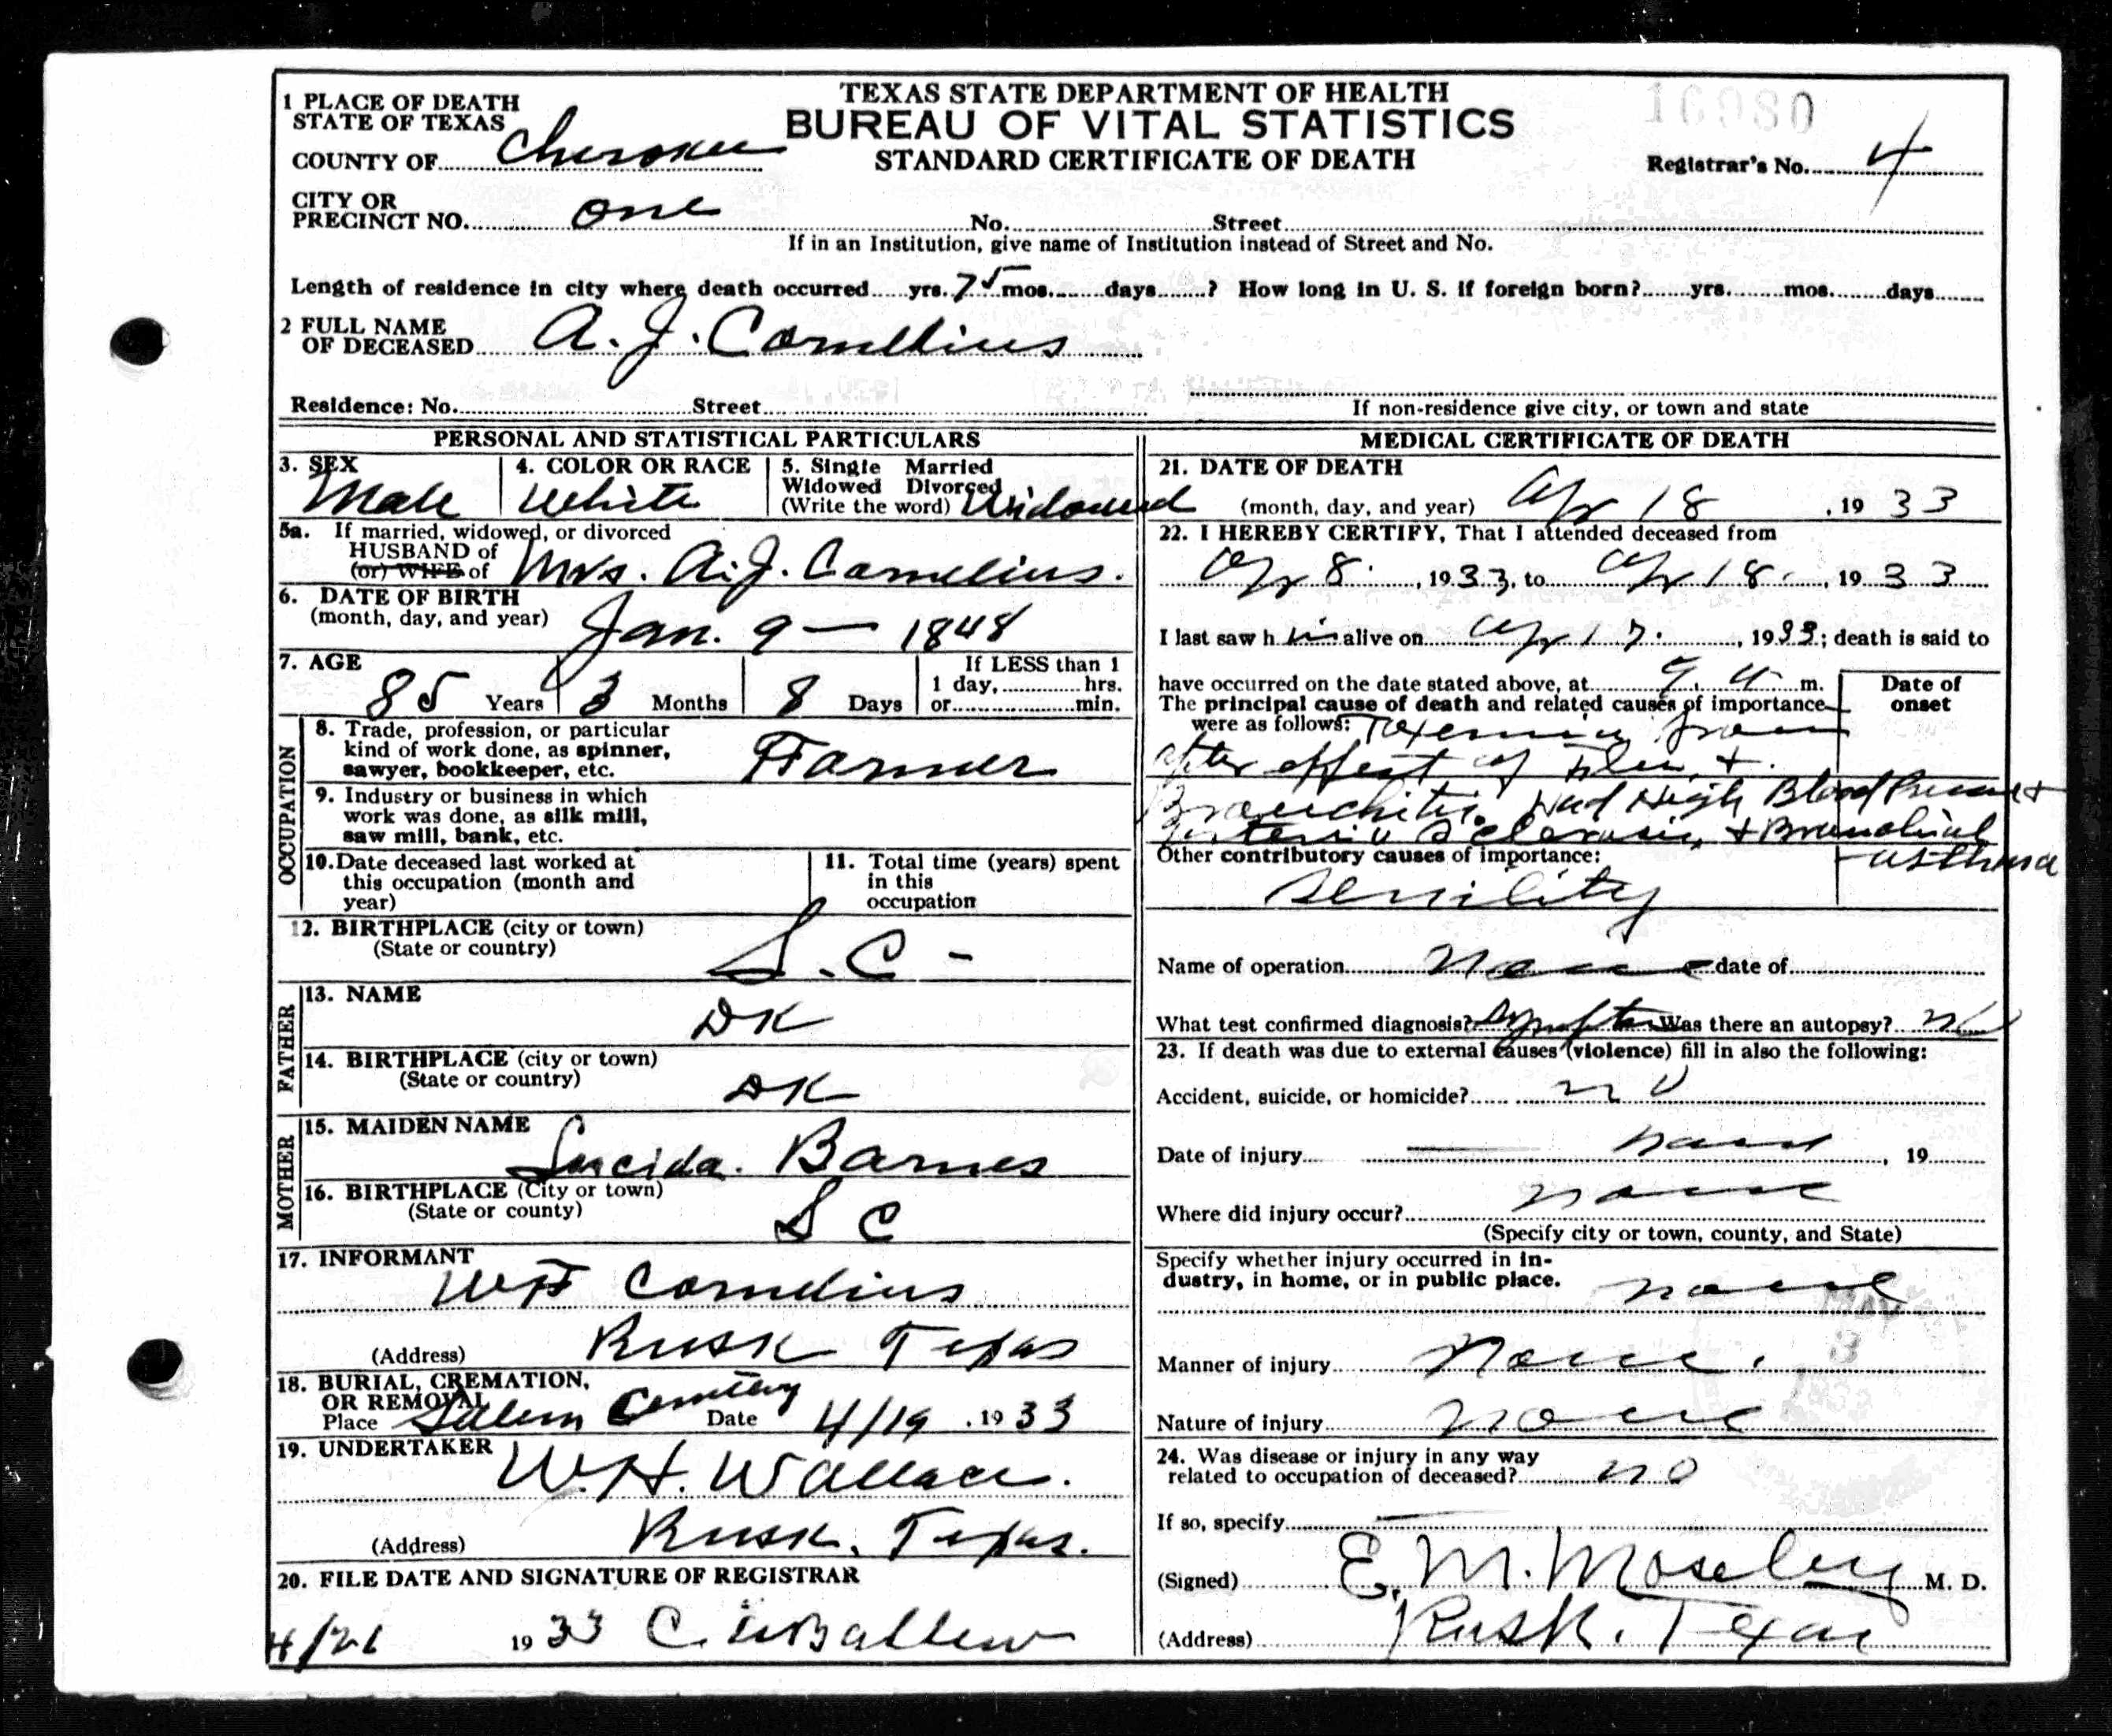 TEXAS STATE DEPARTMENT OF HEALTH
BUREAU OF VITAL STATISTICS
STANDARD CERTIFICATE OF DEATH
16980
Registrar's No. 4
1 PLACE OF DEATH
STATE OF TEXAS
COUNTY OF Cherokee
CITY OR
PRECINCT NO. one No. Street
If in an Institution, give name of Institution instead of Street and No.
Length of residence in city where death occurred yrs. 75 mos. days ? How long in U. S. if foreign born? yrs. mos. days
2 FULL NAME
OF DECEASED A. J. Cornelius
Residence: No. Street
If non-residence give city, or town and state
PERSONAL AND STATISTICAL PARTICULARS
3. SEX 4. COLOR OR RACE 5. Single Married
Widowed Divorced
Male White (Write the word) Widowed
5a. If married, widowed, or divorced
HUSBAND of
(or) WIFE of Mrs. A. J. Cornelius.
6. DATE OF BIRTH
(month, day, and year) Jan. 9 – 1848
7. AGE If LESS than 1
1 day, hrs.
85 Years 3 Months 8 Days or min.
OCCUPATION
8. Trade, profession, or particular
kind of work done, as spinner,
sawyer, bookkeeper, etc. Farmer
9. Industry or business in which
work was done, as silk mill,
saw mill, bank, etc.
10. Date deceased last worked at
this occupation (month and
year)
11. Total time (years) spent
in this
occupation
12. BIRTHPLACE (city or town)
(State or country) S. C -
FATHER
13. NAME DK
14. BIRTHPLACE (city or town)
(State or country) DK
MOTHER
15. MAIDEN NAME Lucida. Barnes
16. BIRTHPLACE (City or town)
(State or county) S C
17. INFORMANT
WF Cornelius
(Address) Rusk Texas
18. BURIAL, CREMATION,
OR REMOVAL
Place Salem Cemetery Date 4/19, 1933
19. UNDERTAKER W. H. Wallace.
(Address) Rusk, Texas.
20. FILE DATE AND SIGNATURE OF REGISTRAR
4/21 1933 C. Ballew
MEDICAL CERTIFICATE OF DEATH
21. DATE OF DEATH
(month, day, and year) Apr 18, 1933
22. I HEREBY CERTIFY, That I attended deceased from
Apr 8., 1933, to Apr 18., 1933
I last saw h im alive on Apr 17., 1933; death is said to
have occurred on the date stated above, at 9. a m.
The principal cause of death and related causes of importance
were as follows: Toxemia from
after effect of Flu, +
Bronchitis. Had High Blood Pressure +
arterio sclerosis, + Bronchial
asthma
Date of
onset
Other contributory causes of importance:
senility
Name of operation None date of
What test confirmed diagnosis? Was there an autopsy? no
23. If death was due to external causes (violence) fill in also the following:
Accident, suicide, or homicide? no
Date of injury none, 19
Where did injury occur? none
(Specify city or town, county, and State)
Specify whether injury occurred in in-
dustry, in home, or in public place. none
MAY
3
1933
Manner of injury None.
Nature of injury none
24. Was disease or injury in any way
related to occupation of deceased? no
If so, specify
(Signed) E. M. Moseley M. D.
(Address) Rusk. Texas